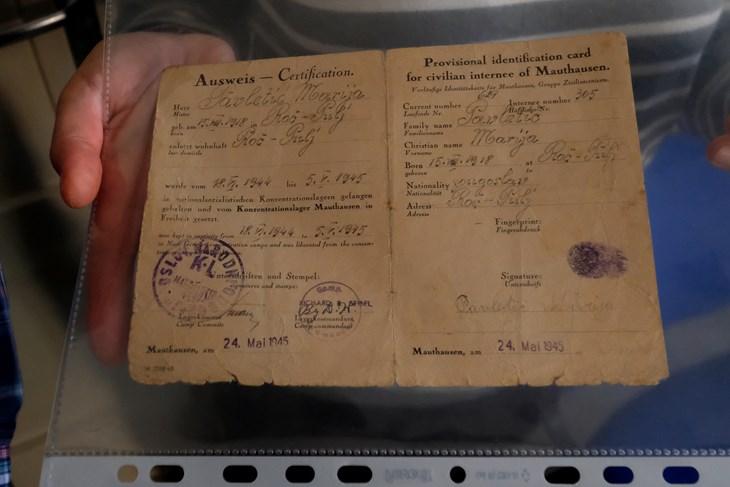 Ausweis — Certification.
Herr Pavletić Marija
Mister
geb. am 15.VIII.1918 in Roč-Pulj
born
zuletzt wohnhaft Roč-Pulj
last domicile
wurde vom 18.VI.1944 bis 5.V.1945
in nationalsozialistischen Konzentrationslagern gefangen
gehalten und vom Konzentrationslager Mauthausen in
Freiheit gesetzt.
was kept in captivity from 18.VI.1944 to 5.V.1945
in Nazi concentration camps and was liberated from the concen-
Unterschriften und Stempel:
K-L
Camp Comitte
RICHARD R. SEIBEL
Lagerkommandant
Camp commandant
Mauthausen, am 24. Mai 1945
Provisional identification card
for civilian internee of Mauthausen.
Vorläufige Identitätskarte für Mauthausen, Gruppe Zivilinternierte.
Current number Internee number 305
Laufende Nr. Häftlings-Nr.
Family name Pavletić
Familienname
Christian name Marija
Vorname
Born 15.VIII.1918 at Roč-Pulj
geboren
Nationality Jugoslav
Nationalität
Adress Roč-Pulj
Adresse
Fingerprint:
Fingerabdruck
Signature:
Unterschrift
Pavletić Marija
Mauthausen, am 24. Mai 1945